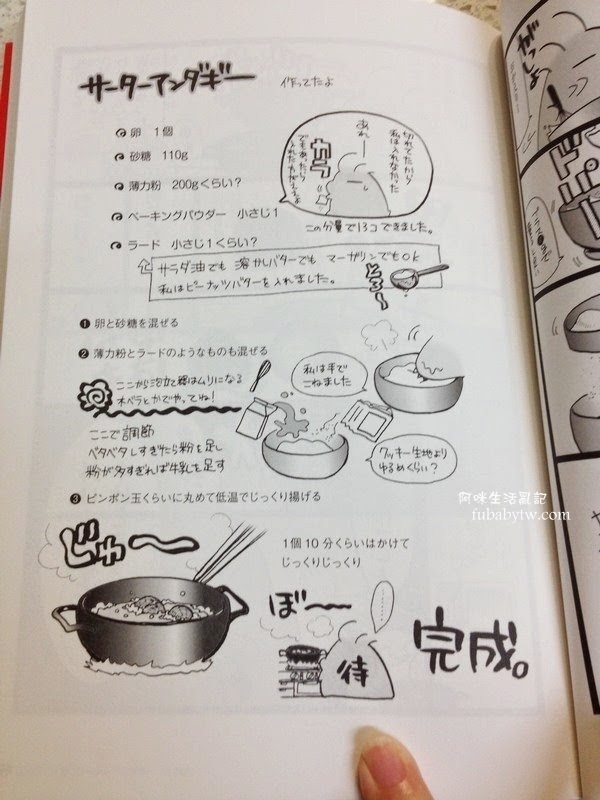 サーターアンダギー
作ってたよ
卵 1個
砂糖 110g
薄力粉 200gくらい?
ベーキングパウダー 小さじ1
ラード 小さじ1くらい?
あれー
切れてたから
私は入れなかった
でもあったら
入れた方がええよ
この分量で13コできました。
サラダ油でも 溶かしバターでも マーガリンでもOK
私はピーナッツバターを入れました。
とろー
❶ 卵と砂糖を混ぜる
❷ 薄力粉とラードのようなものも混ぜる
ここから泡立て器はムリになる
木ベラとかでやってね!
私は手で
こねました
ここで調節
ベタベタしすぎたら粉を足し
粉が多すぎれば牛乳を足す
クッキー生地より
ゆるめくらい?
❸ ピンポン玉くらいに丸めて低温でじっくり揚げる
阿咪生活亂記
fubabytw.com
じゅ〜
1個10分くらいはかけて
じっくりじっくり
ぼ〜
待
完成。